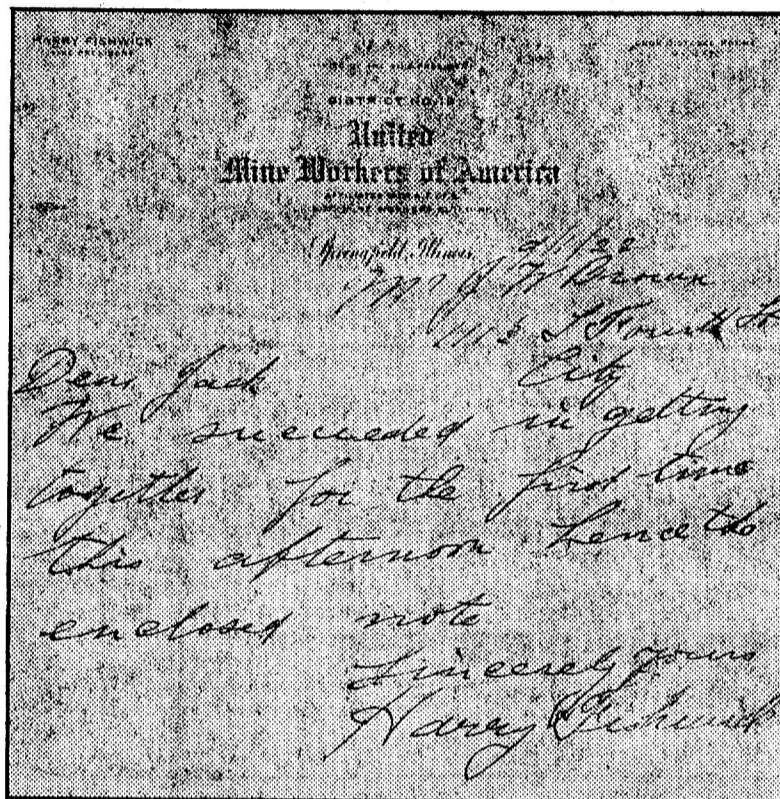 HARRY FISHWICK
VICE PRESIDENT
DISTRICT NO. 12
United
Mine Workers of America
Springfield, Illinois,
Mr J W Brown
Fourth St
City
Dear Jack
We succeeded in getting
together for the first time
this afternoon hence the
enclosed note
Sincerely yours
Harry Fishwick